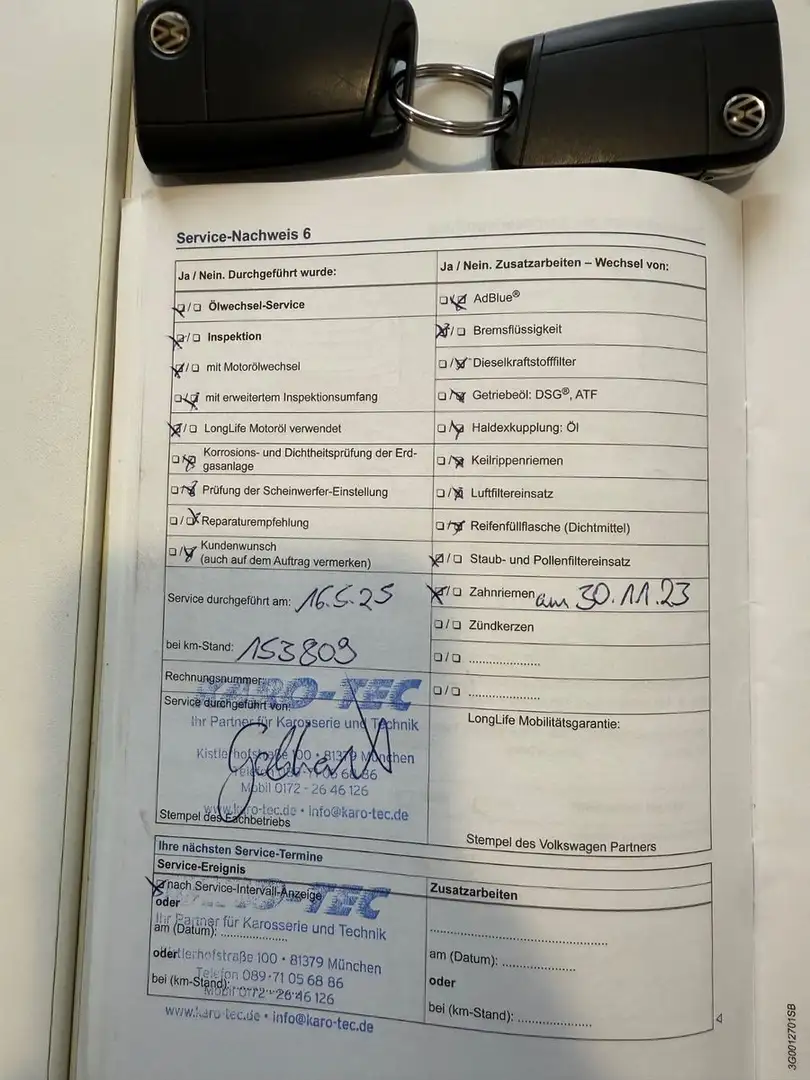 Service-Nachweis 6
Ja / Nein. Durchgeführt wurde:
Ölwechsel-Service
Inspektion
mit Motorölwechsel
mit erweitertem Inspektionsumfang
LongLife Motoröl verwendet
Korrosions- und Dichtheitsprüfung der Erd-
gasanlage
Prüfung der Scheinwerfer-Einstellung
Reparaturempfehlung
Kundenwunsch
(auch auf dem Auftrag vermerken)
Service durchgeführt am: 16.5.25
bei km-Stand: 153809
Rechnungsnummer:
KARO-TEC
Service durchgeführt von:
Ihr Partner für Karosserie und Technik
Kistlerhofstraße 100 • 81379 München
Telefon 089-71 05 68 86
Mobil 0172 - 26 46 126
www.karo-tec.de • info@karo-tec.de
Stempel des Fachbetriebs
Ja / Nein. Zusatzarbeiten – Wechsel von:
AdBlue®
Bremsflüssigkeit
Dieselkraftstofffilter
Getriebeöl: DSG®, ATF
Haldexkupplung: Öl
Keilrippenriemen
Luftfiltereinsatz
Reifenfüllflasche (Dichtmittel)
Staub- und Pollenfiltereinsatz
Zahnriemen am 30.11.23
Zündkerzen
LongLife Mobilitätsgarantie:
Stempel des Volkswagen Partners
Ihre nächsten Service-Termine
Service-Ereignis
nach Service-Intervall-Anzeige
KARO-TEC
oder
Ihr Partner für Karosserie und Technik
am (Datum):
oder
Kistlerhofstraße 100 • 81379 München
Telefon 089-71 05 68 86
bei (km-Stand):
Mobil 0172 - 26 46 126
www.karo-tec.de • info@karo-tec.de
Zusatzarbeiten
am (Datum):
oder
bei (km-Stand):
3G0012701SB